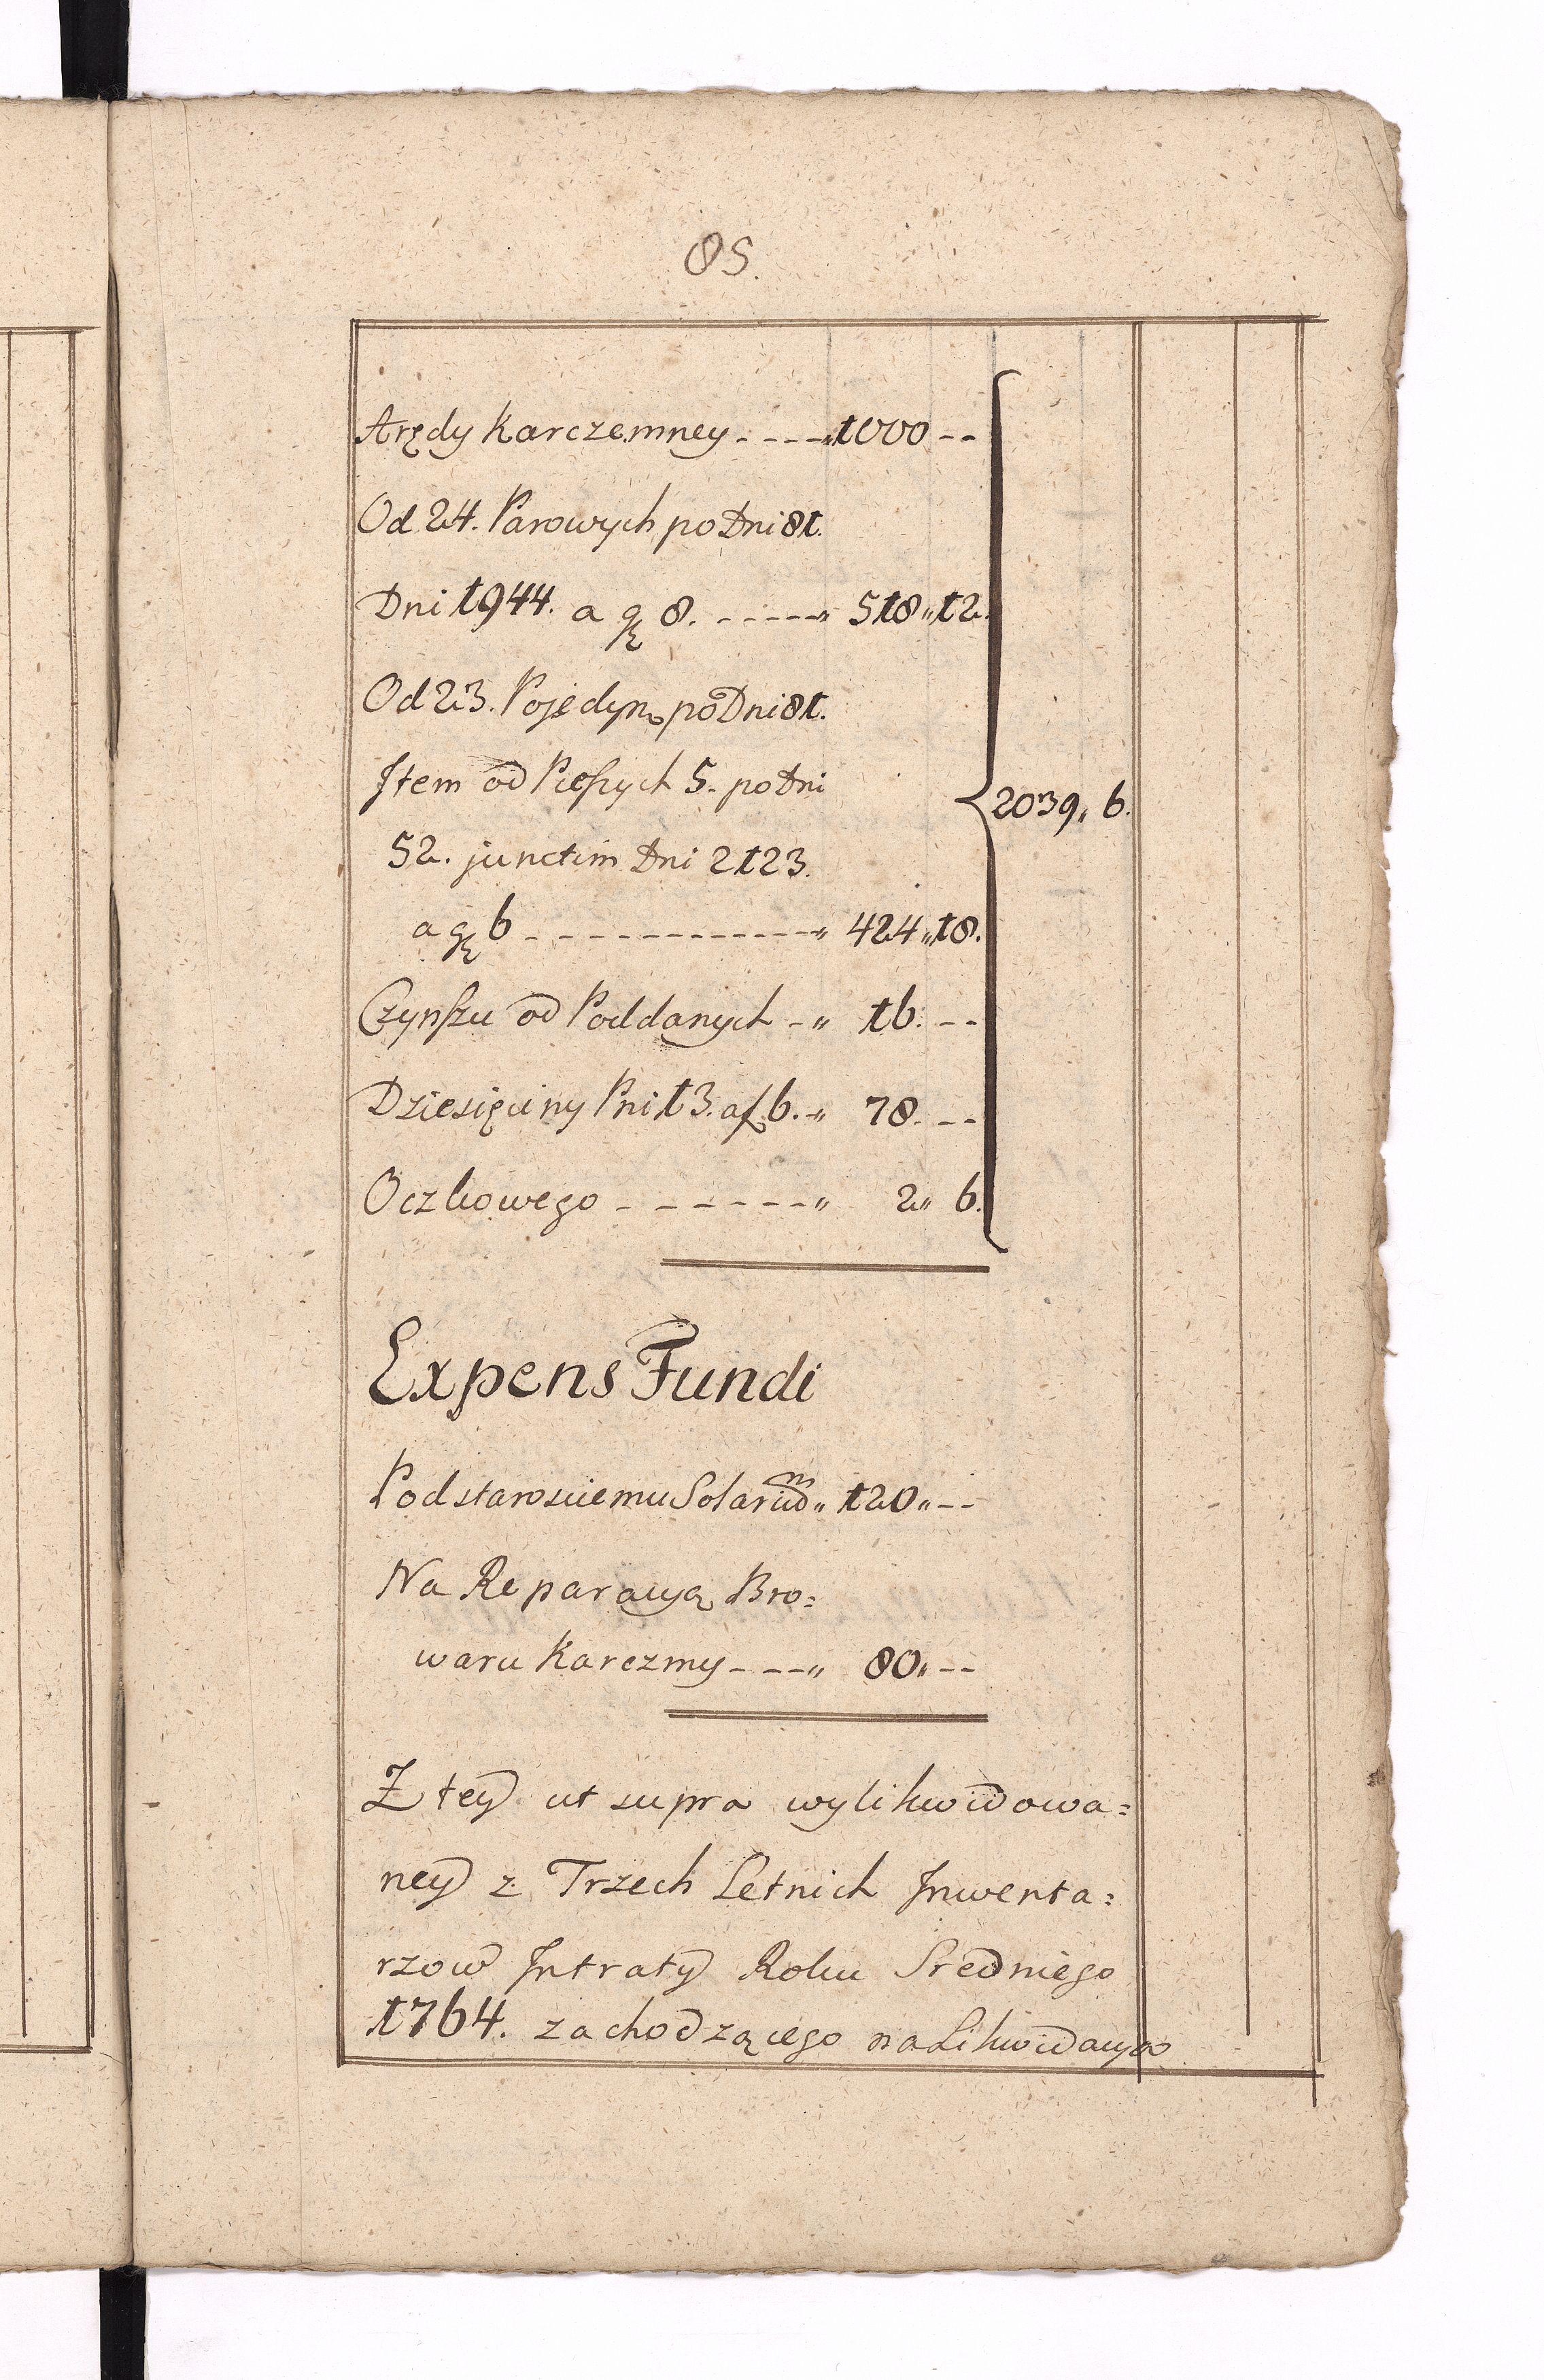 85.
Arędy Karczemney - - - - „ 1000 - -
Od 24. Parowych po Dni 81.
Dni 1944. a gr 8. - - - - - „ 518 „ 12.
Od 23. Pojedyn. po Dni 81.
Item od Pieszych 5. po Dni
52. junctim Dni 2123.
a gr 6 - - - - - - - - - - - - „ 424 „ 18.
2039 „ 6.
Czynszu od Poddanych - „ 16. - -
Dziesięciny Pni 13. a f. 6. - „ 78. - -
Oczkowego - - - - - - - „ 2 „ 6.
Expens Fundi
Podstarosciemu Solarium „ 120 „ - -
Na Reparacyą Bro=
waru Karczmy - - - - „ 80 „ - -
Z tey ut supra wylikwidowa=
ney z Trzech Letnich Inwenta=
rzow Intraty Roku Sredniego
1764. zachodzącego na Likwidacyą